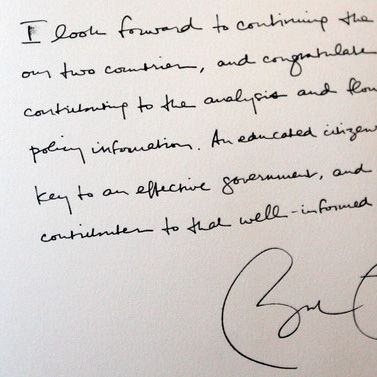 I look forward to continuing the
our two countries, and congratulate
contributing to the analysis and flow
policy information. An educated citizen
key to an effective government, and
contributes to that well-informed